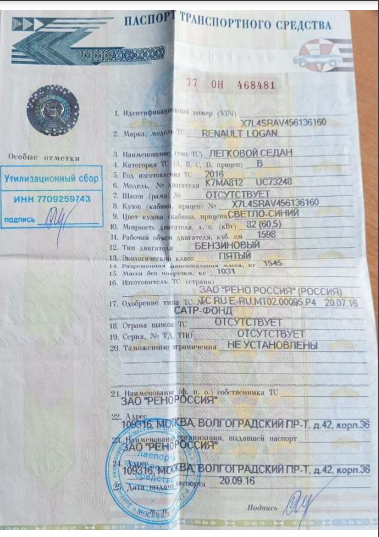 ПАСПОРТ ТРАНСПОРТНОГО СРЕДСТВА
77 ОН 468481
1. Идентификационный номер (VIN) X7L4SRAV456136160
2. Марка, модель ТС RENAULT LOGAN
3. Наименование (тип ТС) ЛЕГКОВОЙ СЕДАН
4. Категория ТС (А, В, С, D, прицеп) B
5. Год изготовления ТС 2016
6. Модель, № двигателя K7MA812 UC73248
7. Шасси (рама) № ОТСУТСТВУЕТ
8. Кузов (кабина, прицеп) № X7L4SRAV456136160
9. Цвет кузова (кабины, прицепа) СВЕТЛО-СИНИЙ
10. Мощность двигателя, л. с. (кВт) 82 (60,5)
11. Рабочий объем двигателя, куб. см 1598
12. Тип двигателя БЕНЗИНОВЫЙ
13. Экологический класс ПЯТЫЙ
14. Разрешенная максимальная масса, кг 1545
15. Масса без нагрузки, кг 1031
16. Изготовитель ТС (страна)
ЗАО "РЕНО РОССИЯ" (РОССИЯ)
17. Одобрение типа ТС № ТС RU E-RU.MT02.00095.P4 20.07.16
САТР-ФОНД
18. Страна вывоза ТС ОТСУТСТВУЕТ
19. Серия, № ТД, ТПО ОТСУТСТВУЕТ
20. Таможенные ограничения НЕ УСТАНОВЛЕНЫ
21. Наименование (ф. и. о.) собственника ТС
ЗАО "РЕНО РОССИЯ"
22. Адрес
109316, МОСКВА, ВОЛГОГРАДСКИЙ ПР-Т, д.42, корп.36
23. Наименование организации, выдавшей паспорт
ЗАО "РЕНО РОССИЯ"
24. Адрес
109316, МОСКВА, ВОЛГОГРАДСКИЙ ПР-Т, д.42, корп.36
25. Дата выдачи паспорта 20.09.16
Подпись
Особые отметки
Утилизационный сбор
ИНН 7709259743
подпись